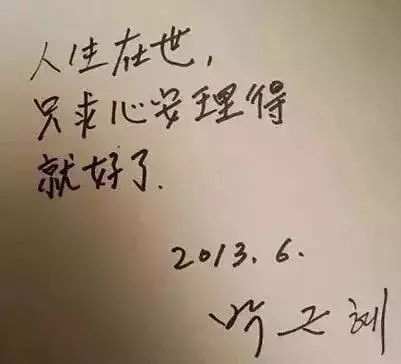 人生在世，
只求心安理得
就好了.
2013. 6.
박근혜